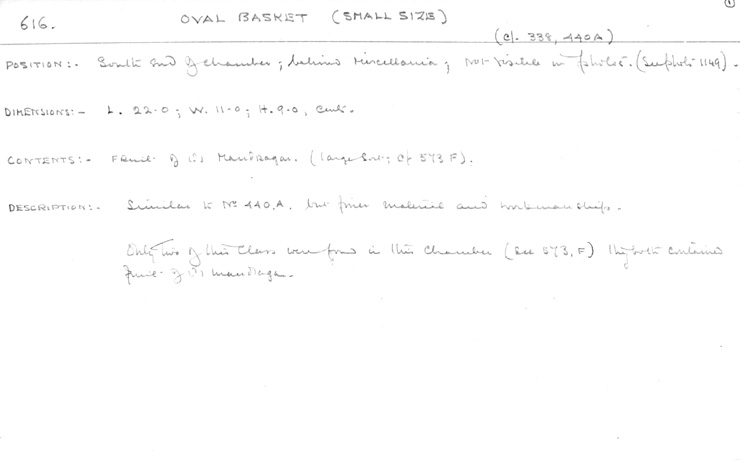 ①
616. OVAL BASKET (SMALL SIZE)
(cf. 338, 440A)
POSITION:- South End of chamber; behind Miscellania; Not visible in photos. (See photo 1149).
DIMENSIONS:- L. 22-0; W. 11-0; H. 9-0, Cents.
CONTENTS:- Fruit of Mandragar. (large Sort; Cf 573 F).
DESCRIPTION:- Similar to No 440.A. but finer material and workmanship.
Only two of this Class were found in this Chamber (see 573, F) They both contained
fruit of mandraga.